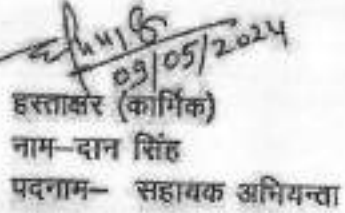 09/05/2024
हस्ताक्षर (कार्मिक)
नाम–दान सिंह
पदनाम– सहायक अभियन्ता